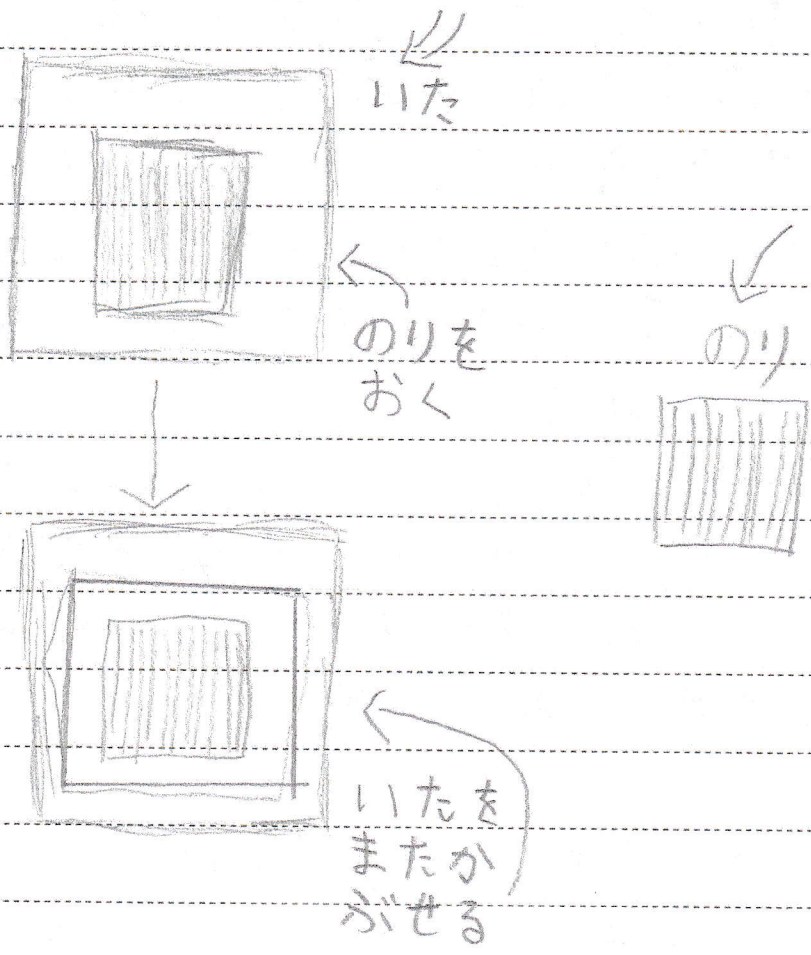 いた
のりを
おく
のり
いたを
またか
ぶせる